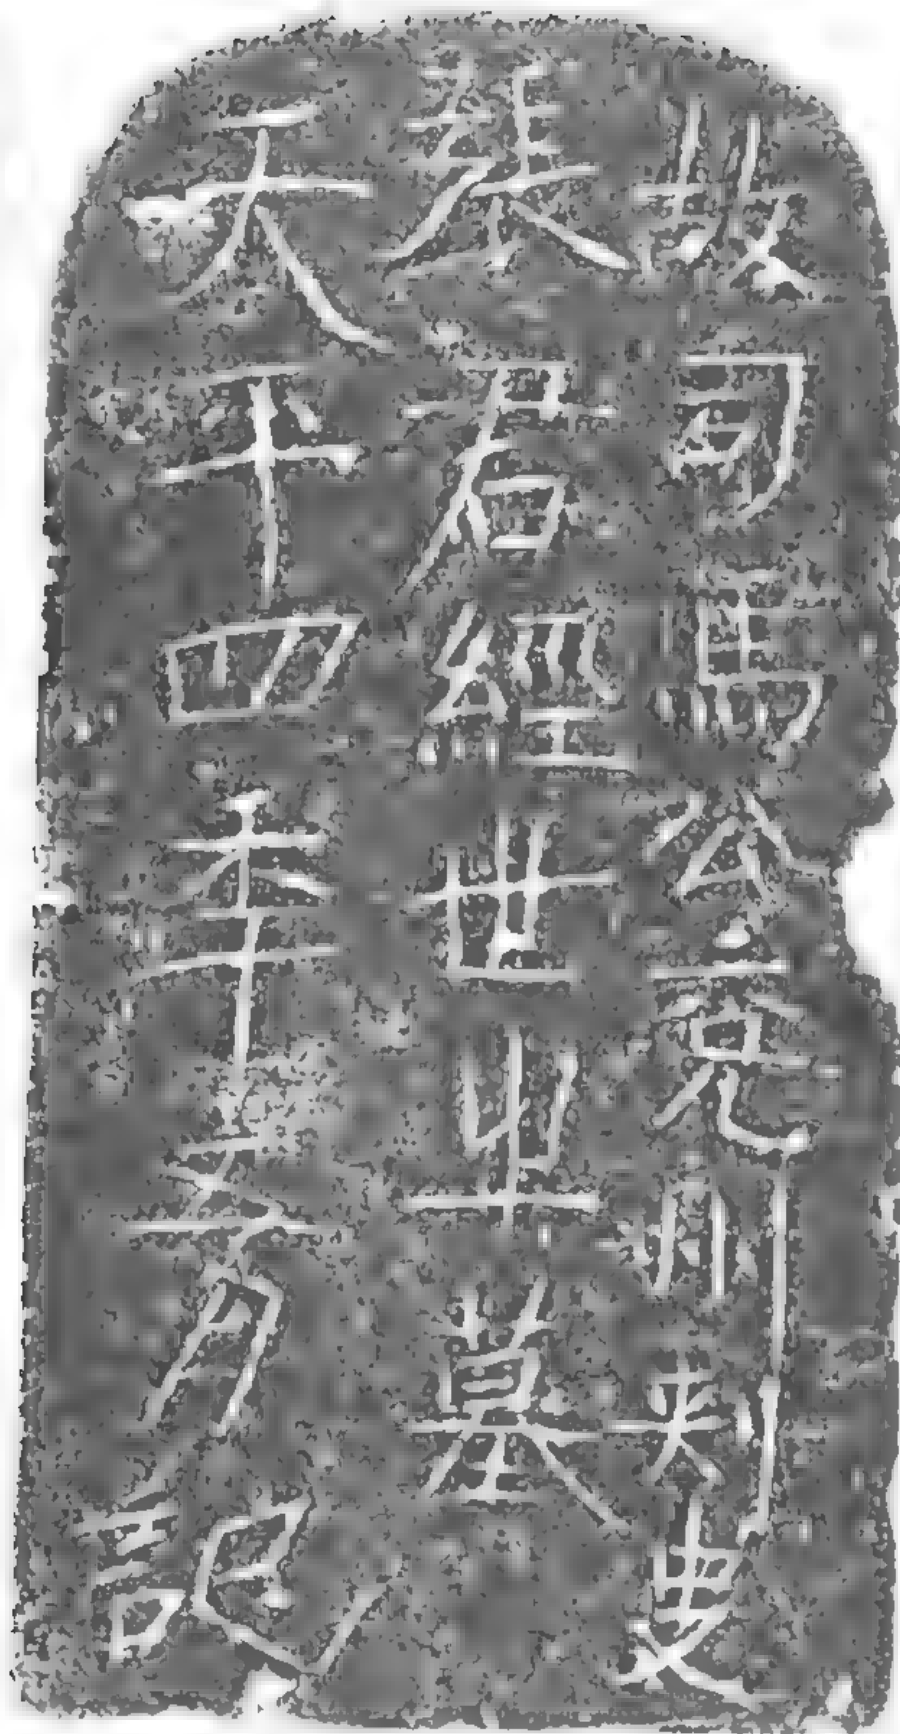 故司馬公兗州刺史
裴君經世之墓
天平四年五月記